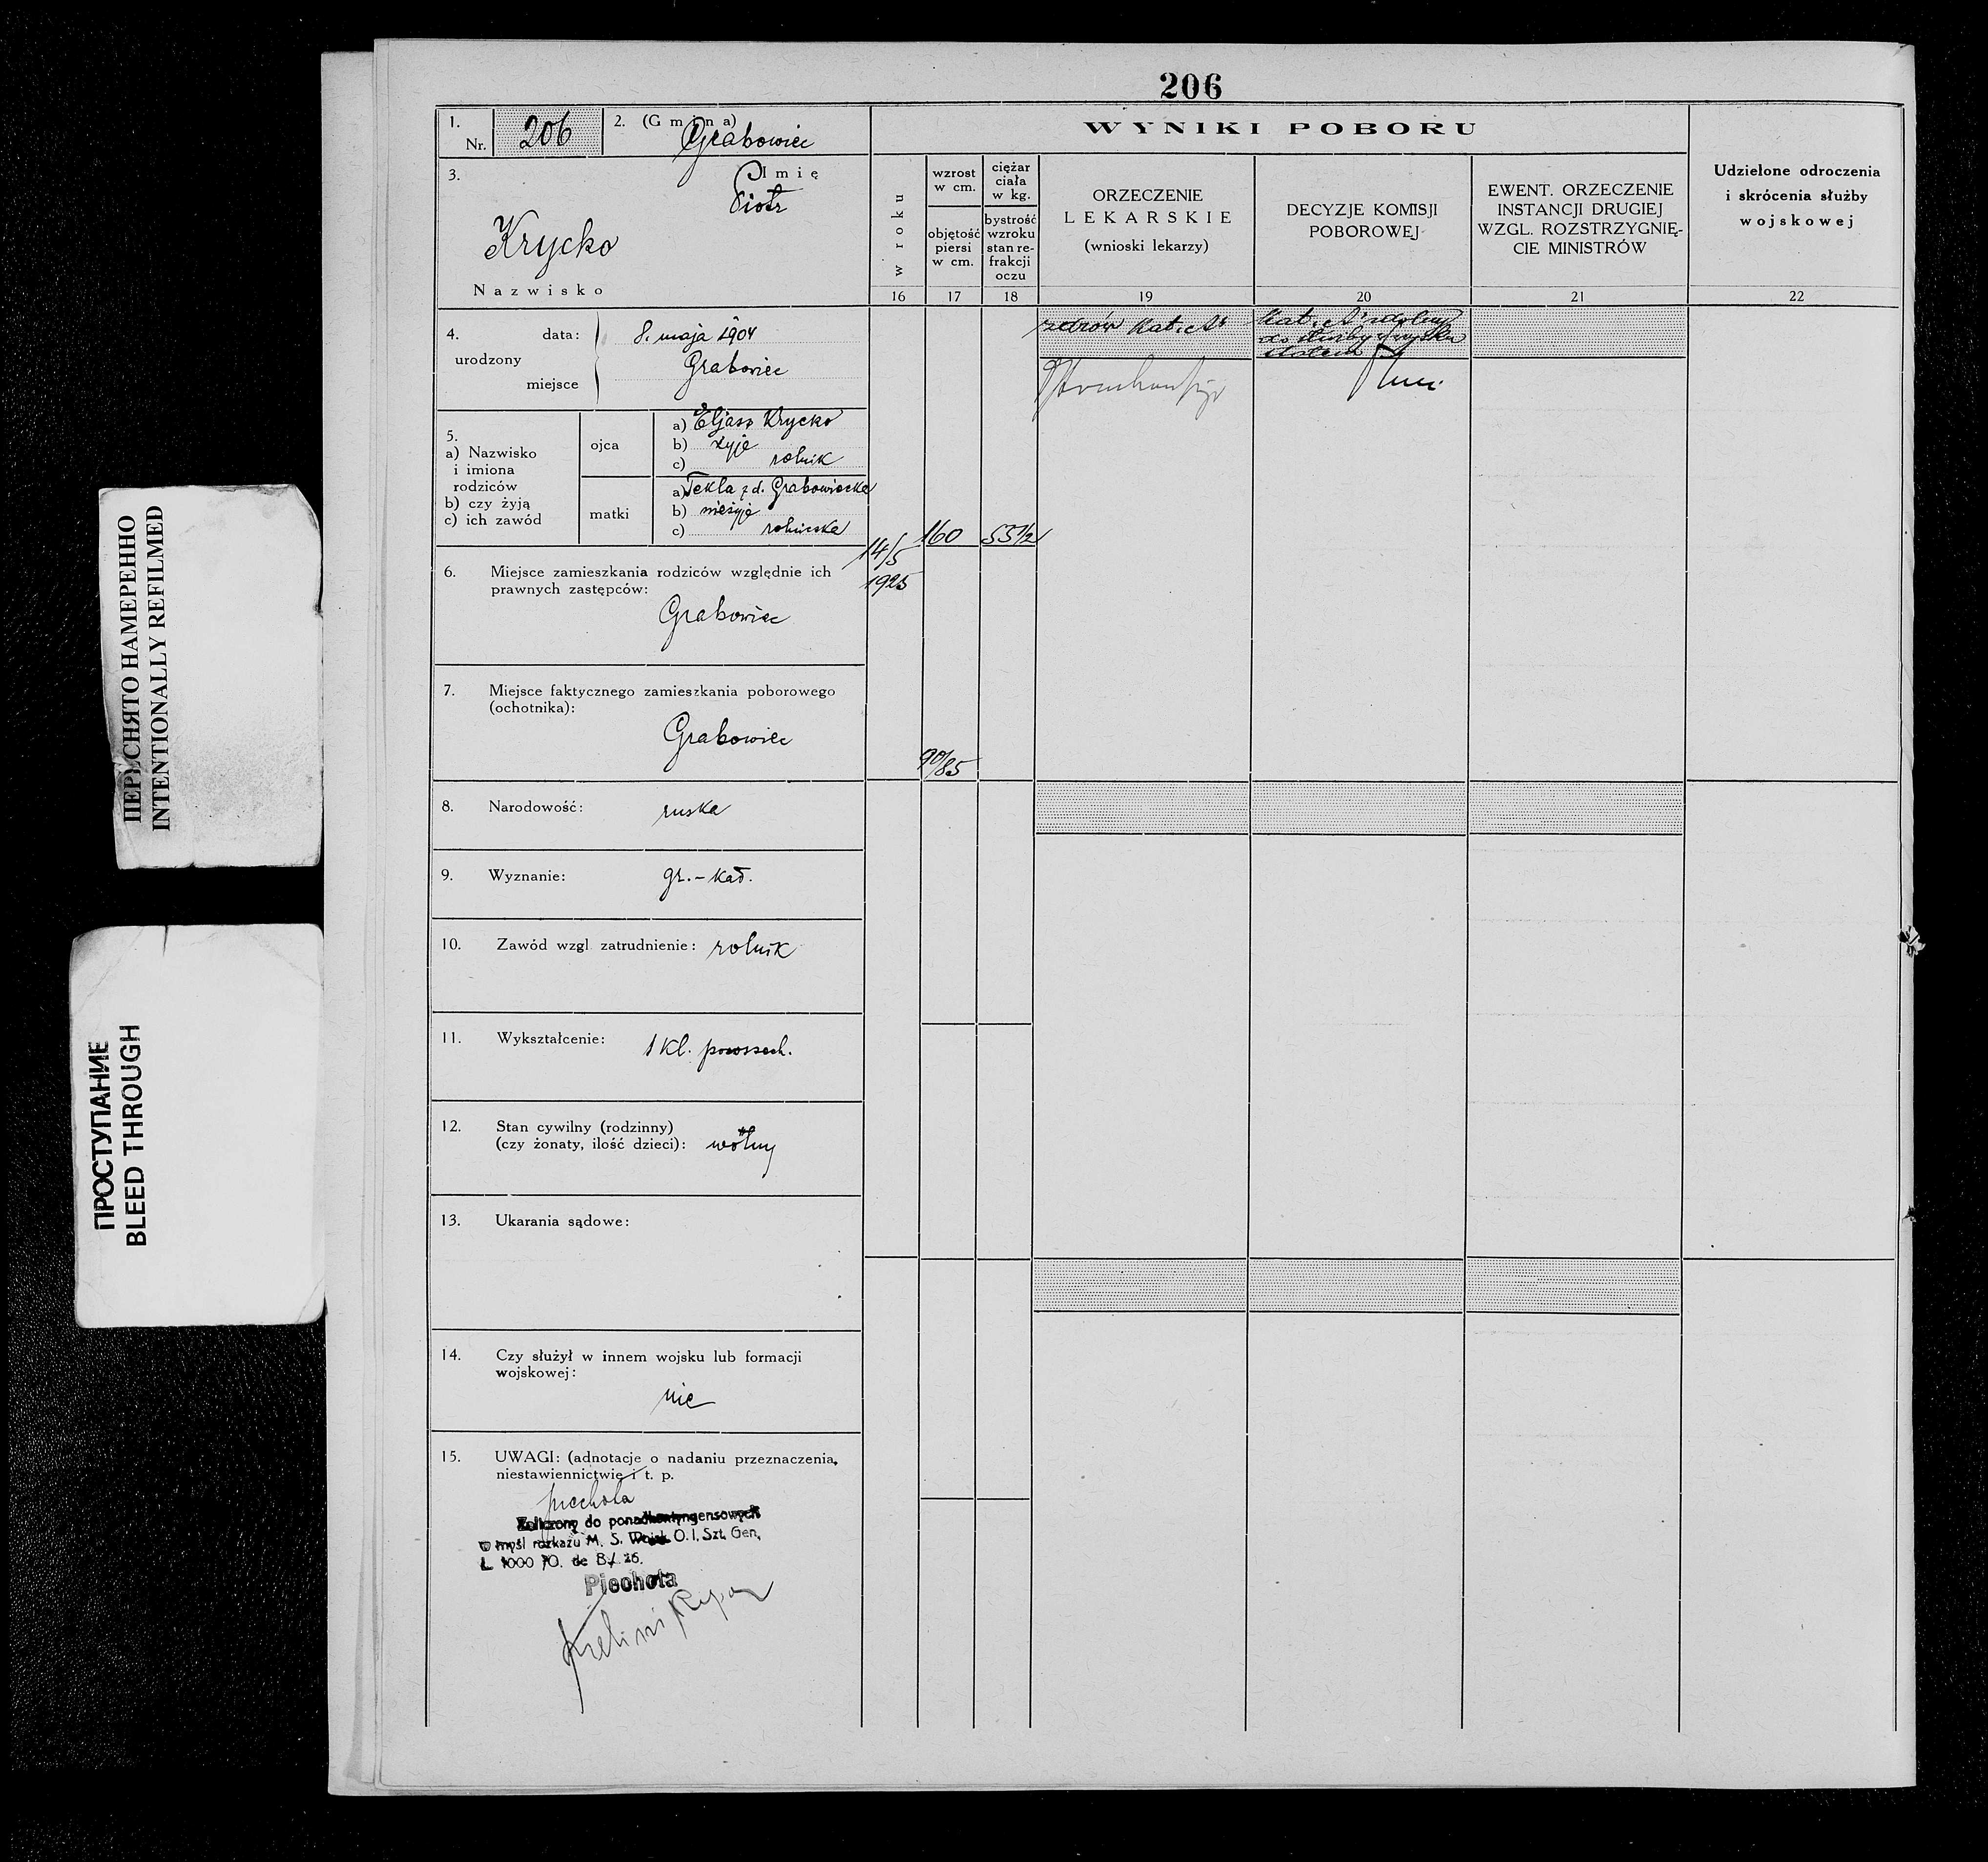 206
1.
Nr. 206
2. (Gmina)
Grabowiec
3.
Imię
Piotr
Krycko
Nazwisko
WYNIKI POBORU
w roku
wzrost
w cm.
objętość
piersi
w cm.
ciężar
ciała
w kg.
bystrość
wzroku
stan re-
frakcji
oczu
ORZECZENIE
LEKARSKIE
(wnioski lekarzy)
DECYZJE KOMISJI
POBOROWEJ
EWENT. ORZECZENIE
INSTANCJI DRUGIEJ
WZGL. ROZSTRZYGNIĘ-
CIE MINISTRÓW
Udzielone odroczenia
i skrócenia służby
wojskowej
16 17 18 19 20 21 22
4. urodzony
data: 8. maja 1904
miejsce Grabowiec
zdrów Kat. A
Kat. A zdolny
do służby
5.
a) Nazwisko
i imiona
rodziców
b) czy żyją
c) ich zawód
ojca
a) Eljasz Krycko
b) żyje
c) rolnik
matki
a) Tekla z d. Grabowiecka
b) nieżyje
c) rolniczka
14/5
1925
160
55 1/2
90/85
6. Miejsce zamieszkania rodziców względnie ich
prawnych zastępców:
Grabowiec
7. Miejsce faktycznego zamieszkania poborowego
(ochotnika):
Grabowiec
8. Narodowość: ruska
9. Wyznanie: gr.-kat.
10. Zawód wzgl zatrudnienie: rolnik
11. Wykształcenie: 1 kl. powszech.
12. Stan cywilny (rodzinny)
(czy żonaty, ilość dzieci): wolny
13. Ukarania sądowe:
14. Czy służył w innem wojsku lub formacji
wojskowej:
nie
15. UWAGI: (adnotacje o nadaniu przeznaczenia,
niestawiennictwie i t. p.
piechota
Zaliczony do ponadkontyngensowych
w myśl rozkazu M. S. Wojsk. O. I. Szt. Gen.
L. 1000
Piechota
ПЕРЕСНЯТО НАМЕРЕННО
INTENTIONALLY REFILMED
ПРОСТУПАНИЕ
BLEED THROUGH